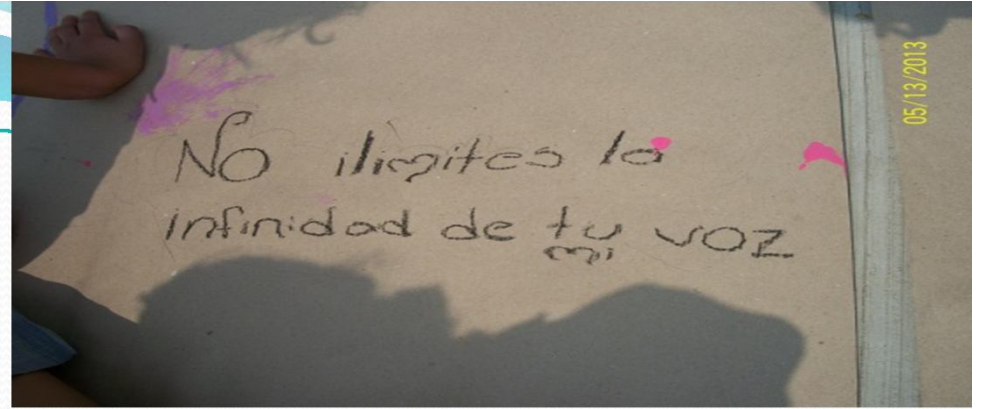 No ilimites la
infinidad de tu voz
mi
05/13/2013